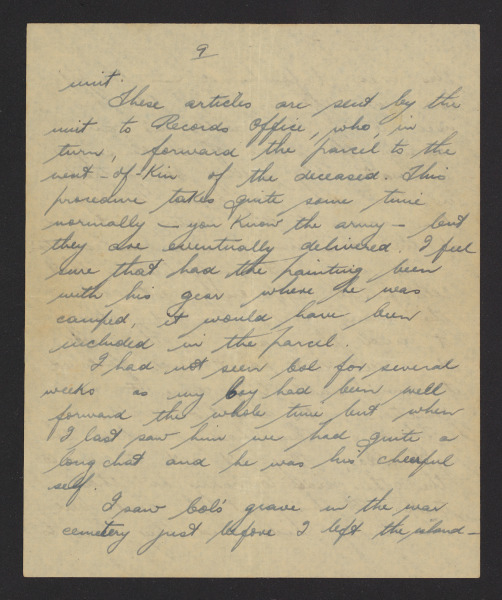 9
unit.
These articles are sent by the
unit to Records Office, who, in
turn, forward the parcel to the
next-of-Kin of the deceased. This
procedure takes quite some time
normally – you know the army – but
they are eventually delivered. I feel
sure that had the painting been
with his gear where he was
camped, it would have been
included in the parcel.
I had not seen Col for several
weeks as my Coy had been well
forward the whole time but when
I last saw him we had quite a
long chat and he was his cheerful
self.
I saw Col's grave in the war
cemetery just before I left the island –